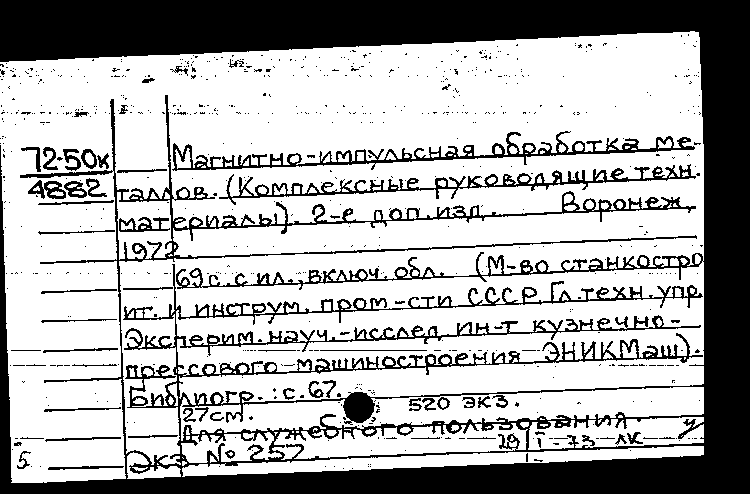 72-50к
4882
Магнитно-импульсная обработка ме-
таллов. (Комплексные руководящие техн.
материалы). 2-е доп. изд. Воронеж,
1972.
69 с. с ил., включ. обл. (М-во станкостро
ит. и инструм. пром-сти СССР. Гл. техн. упр.
Эксперим. науч.-исслед. ин-т кузнечно-
прессового машиностроения ЭНИКМаш).
Библиогр.: с. 67.
27 см. 520 экз.
Для служебного пользования.
Экз. № 257.
5